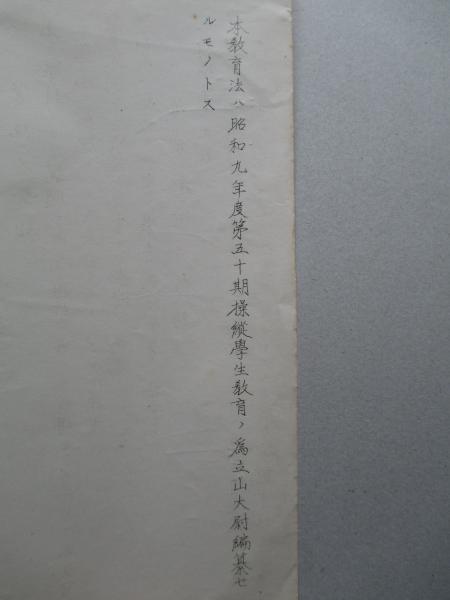 本教育法ハ昭和九年度第五十期操縱學生教育ノ爲立山大尉編纂セ
ルモノトス